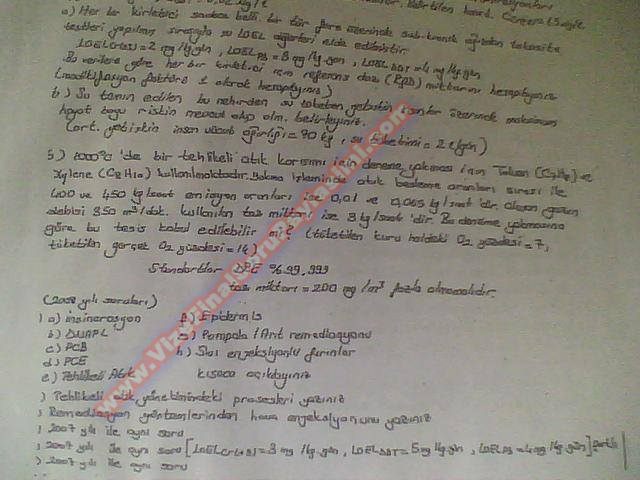 a) Her bir kirletici sadece belli bir tür fare üzerinde sub-kronik ağızdan toksisite
testleri yapılmış sırasıyla şu LOEL değerleri elde edilmiştir.
= 2 mg/kg.gün , LOEL = 3 mg/kg.gün , LOEL DDT = 4 mg/kg.gün
Bu verilere göre her bir kirletici için referans dozu (RfD) miktarını hesaplayınız
(modifikasyon faktörü 1 olarak hesaplayınız)
b) Su temin edilen bu nehirden su tüketen insanlar üzerinde maksimum
hayat boyu riskin mevcut olup olm. belirleyiniz.
(ort. yetişkin insan vücut ağırlığı = 70 kg , su tüketimi = 2 lt/gün)
5) 1000°C 'de bir tehlikeli atık karışımı için deneme yakması için Toluen (C7H8) ve
Xylene (C8H10) kullanılmaktadır. Yakma işleminde atık besleme oranları sırası ile
400 ve 450 kg/saat emisyon oranları ise 0,01 ve 0,065 kg/saat 'dir. Oluşan gazın
debisi 350 m³/dak. kullanılan toz miktarı ise 3 kg/saat 'dir. Bu deneme yakmasına
göre bu tesis kabul edilebilir mi? (tüketilen kuru haldeki O2 yüzdesi = 7,
tüketilen gerçek O2 yüzdesi = 14)
Standartlar DRE %99,999
toz miktarı = 200 mg/m³ fazla olmamalıdır.
(2008 yılı soruları)
1) a) insinerasyon f) Epidermis
b) DNAPL g) Pompala / Arıt remediasyonu
c) PCB h) Sıvı enjeksiyonlu fırınlar
d) PCE
e) Tehlikeli Atık kısaca açıklayınız
) Tehlikeli atık yönetimindeki prosesleri yazınız
) Remediasyon yöntemlerinden hava enjeksiyonunu yazınız
) 2007 yılı ile aynı soru
) 2007 yılı ile aynı soru [LOEL Cr(+6) = 3 mg/kg.gün , LOEL DDT = 5 mg/kg.gün , LOEL PB = 4 mg/kg.gün]
) 2007 yılı ile aynı soru
www.VizeFinalSoruPaylasimi.com